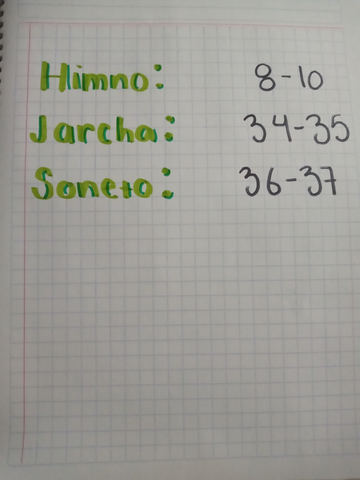 Himno: 8-10
Jarcha: 34-35
Soneto: 36-37